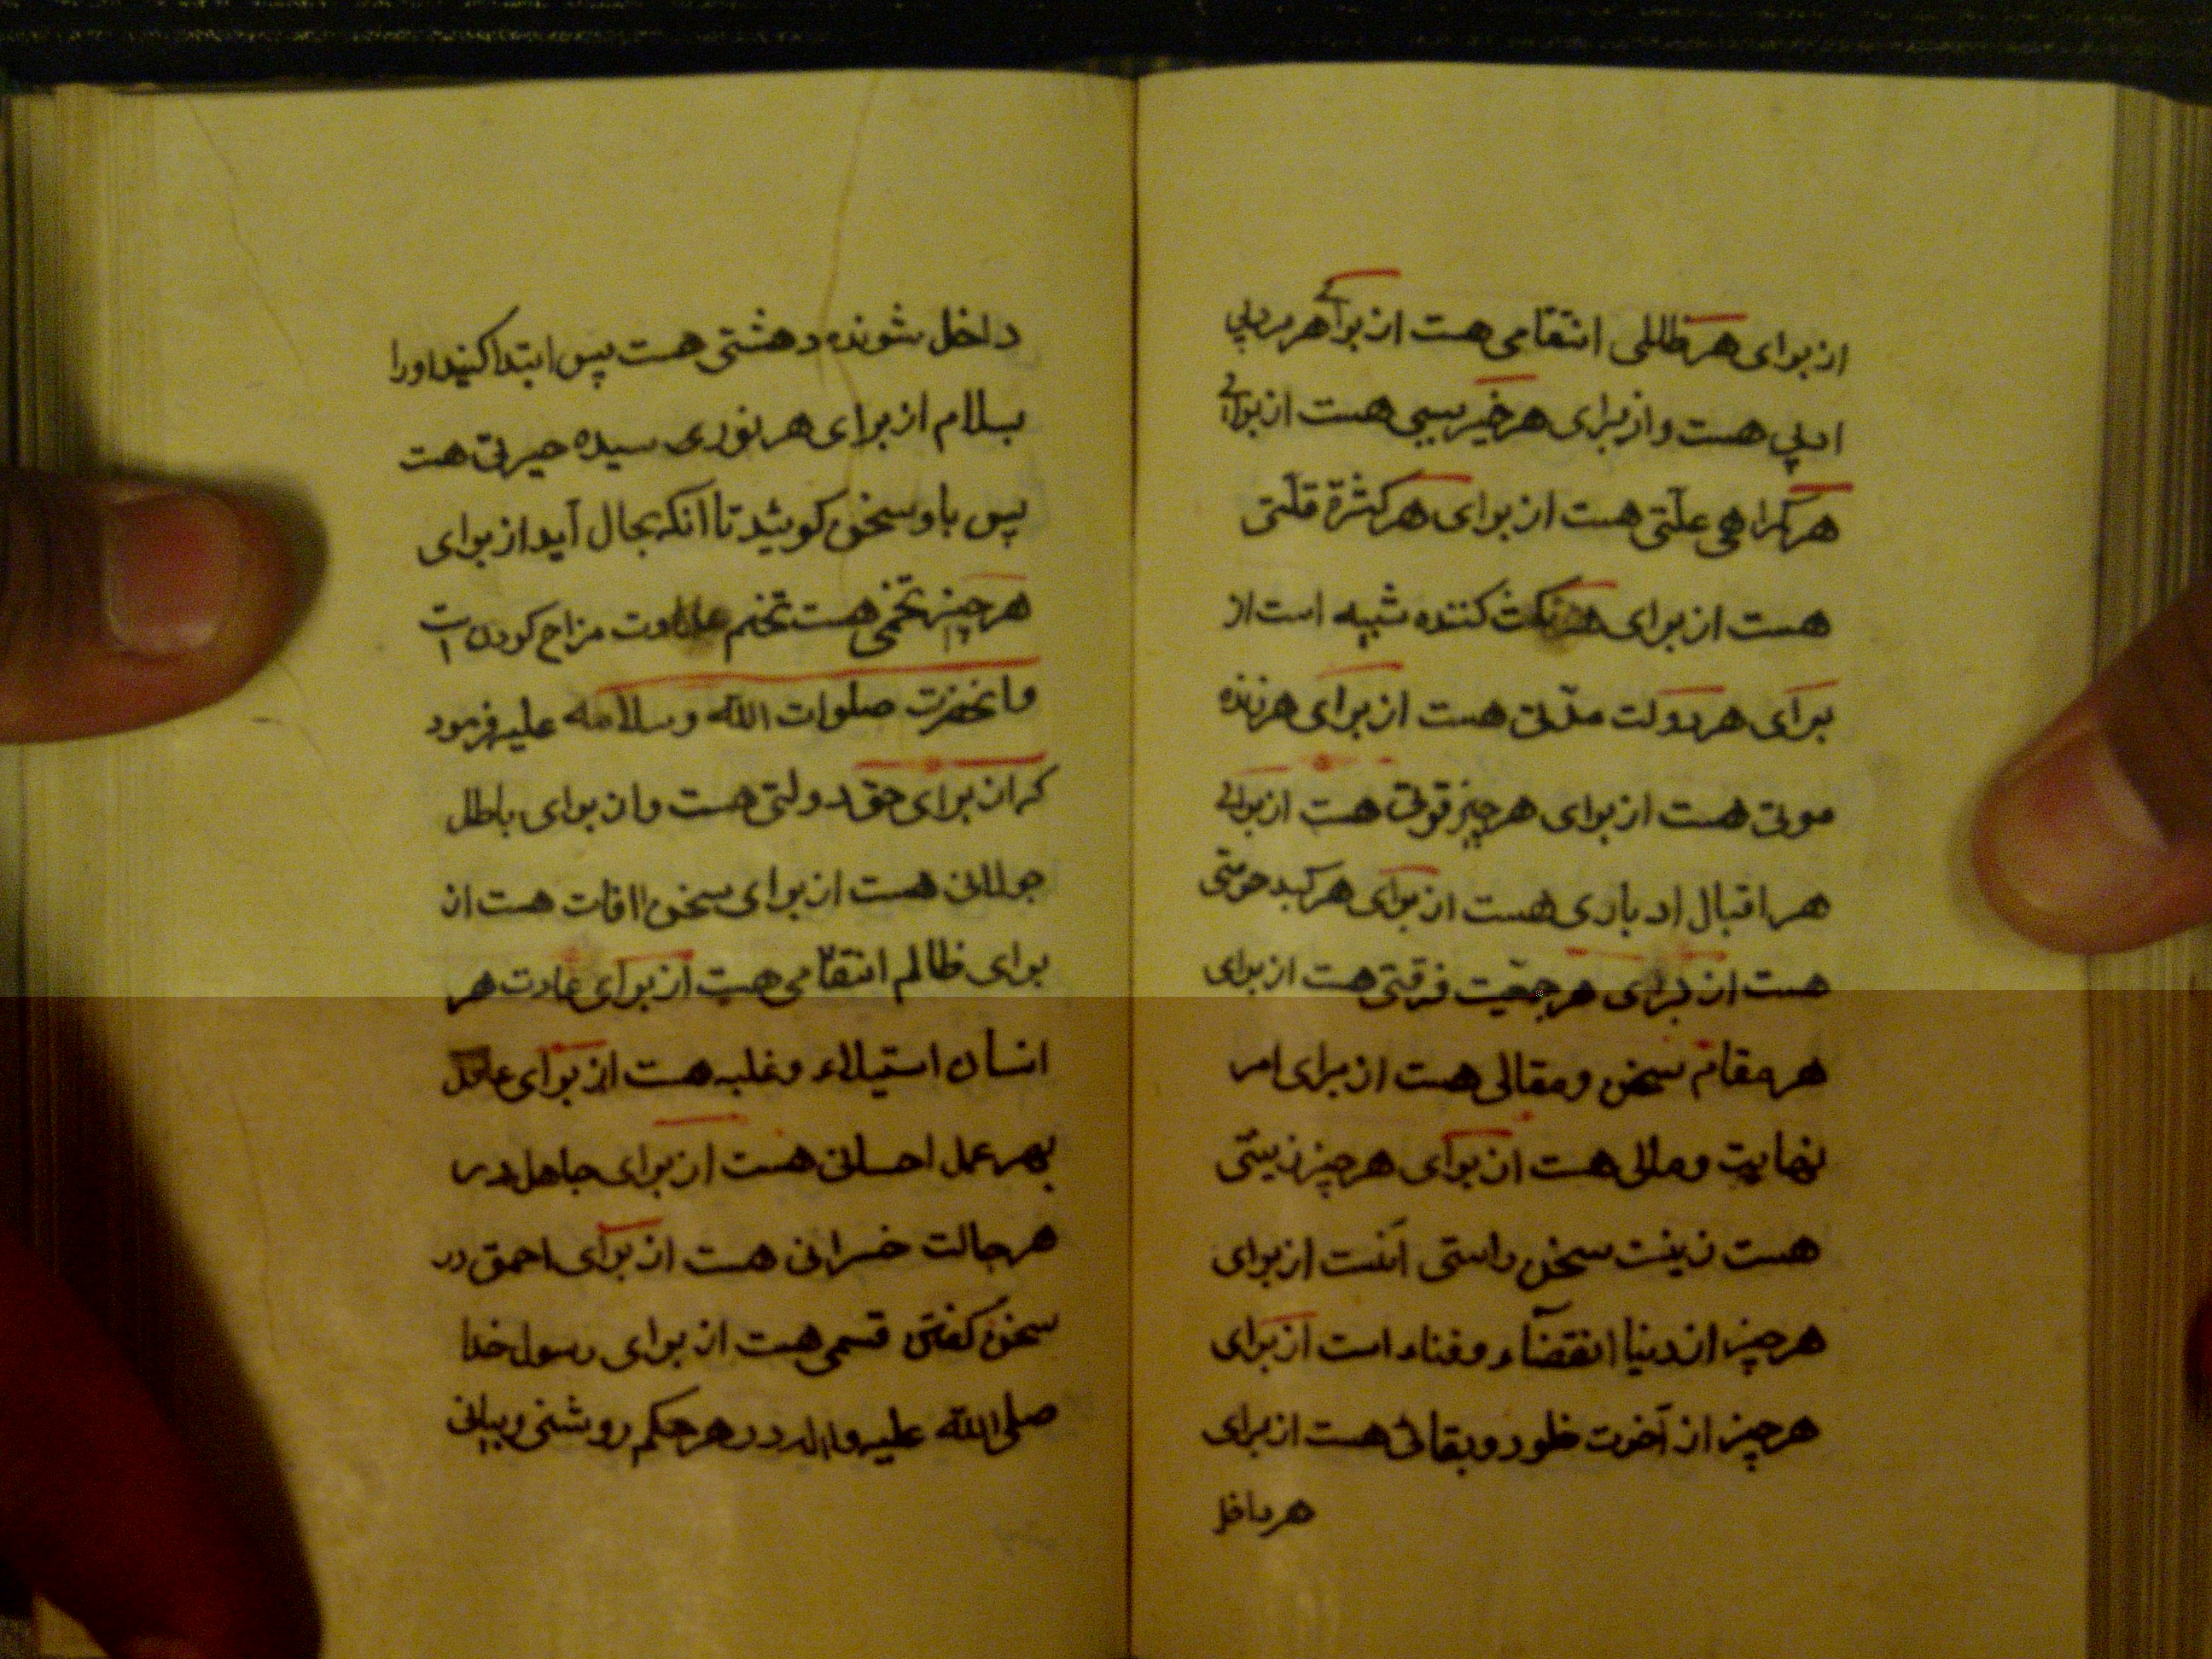 از برای هر ظالمی انتقامی هست از برای هر مردی
ادبی هست و از برای هر خیر سببی هست از برای
هر گمراهی علّتی هست از برای هر کثرة قلّتی
هست از برای هر نکث کننده شبهه است از
برای هر دولت مدّتی هست از برای هر زنده
موتی هست از برای هر چیز قوتی هست از برای
هر اقبال ادباری هست از برای هر کبد حرمتی
هست از برای هر جمعیت فرقتی هست از برای
هر مقام سخن و مقالی هست از برای امر
نهایت و مالی هست از برای هر چیز زینتی
هست زینت سخن راستی آنست از برای
هر چیز از دنیا انقضاء و فناء است از برای
هر چیز از آخرت خلود و بقائی هست از برای
هر داخل
داخل شونده دهشتی هست پس ابتدا کنید او را
بسلام از برای هر نوری سیده حیرتی هست
پس با او سخن کویید تا آنکه بحال آید از برای
هر چیز تخمی هست تخم عداوت مزاح کردن است
و انحضرت صلوات الله و سلامه علیه فرمود
که از برای حق دولتی هست و از برای باطل
جولانی هست از برای سخن اافات هست از
برای ظالم انتقامی هست از برای عادت هر
انسان استیلاء و غلبه هست از برای عاقل
بهر عمل احسانی هست از برای جاهل در
هر حالت خسرانی هست از برای احمق در
سخن کفتن قسمی هست از برای رسول خدا
صلی الله علیه واله در هر حکم روشنی و بیانی